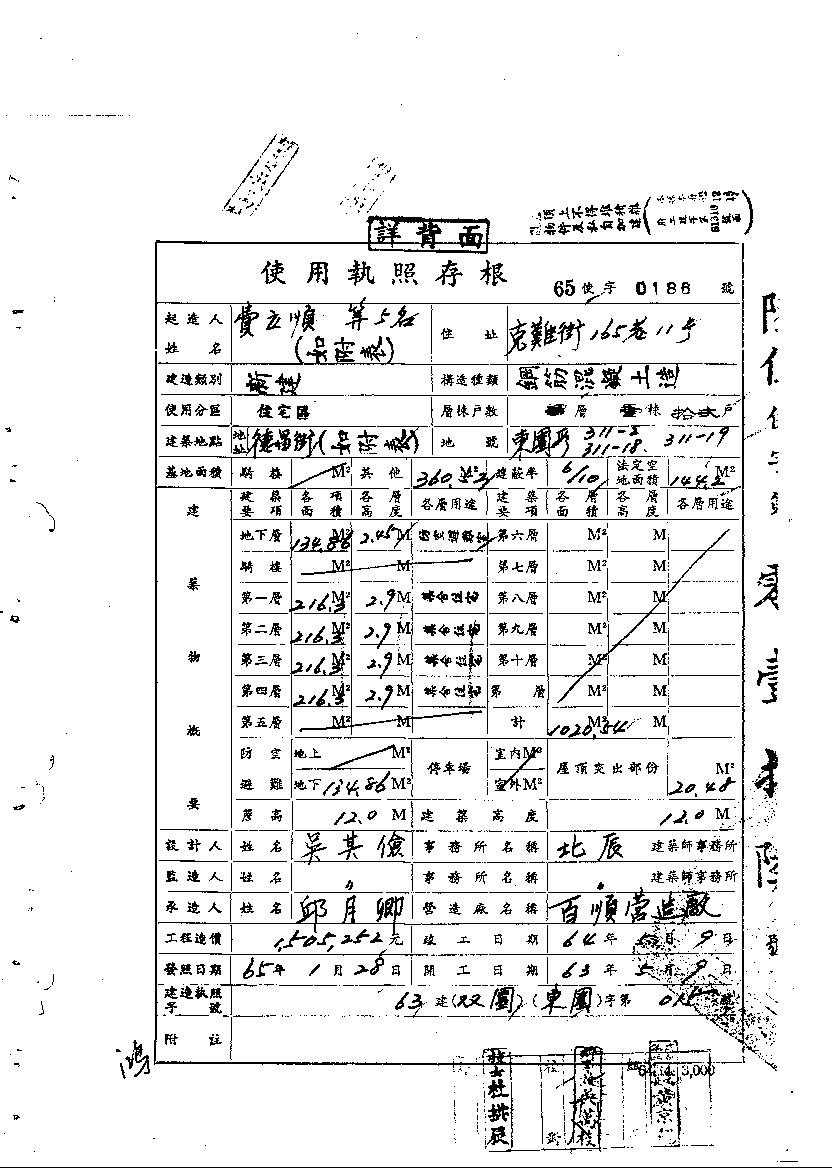 詳背面
使用執照存根
65使字 0186 號
起造人姓名 費立順 等5名 (如附表) 住址 克難街165巷11号
建造類別 新建 構造種類 鋼筋混凝土造
使用分區 住宅區 層棟戶數 層 棟 拾貳戶
建築地點 地址 德昌街(如附表) 地號 東園段 311-2 311-18 311-19
基地面積 騎樓 M² 其他 360.53 M² 建蔽率 6/10 法定空地面積 144.2 M²
建築物概要 建築要項 各項面積 各層高度 各層用途 建築要項 各層面積 各層高度 各層用途
地下層 134.86 M² 2.45 M 第六層 M² M
騎樓 M² M 第七層 M² M
第一層 216.3 M² 2.9 M 集合住宅 第八層 M² M
第二層 216.3 M² 2.9 M 集合住宅 第九層 M² M
第三層 216.3 M² 2.9 M 集合住宅 第十層 M² M
第四層 216.3 M² 2.9 M 集合住宅 第 層 M² M
第五層 M² M 計 1020.54 M² M
防空避難 地上 M² 停車場 室內 M² 屋頂突出部份 20.48 M²
地下 134.86 M² 室外 M²
簷高 12.0 M 建築高度 12.0 M
設計人 姓名 吳其儉 事務所名稱 北辰 建築師事務所
監造人 姓名 〃 事務所名稱 〃 建築師事務所
承造人 姓名 邱月卿 營造廠名稱 百順營造廠
工程造價 1,505,252元 竣工日期 64年 月9日
發照日期 65年1月28日 開工日期 63年5月9日
建造執照字號 63建(双園)(東園)字第 015 號
附註
鴻
3,000